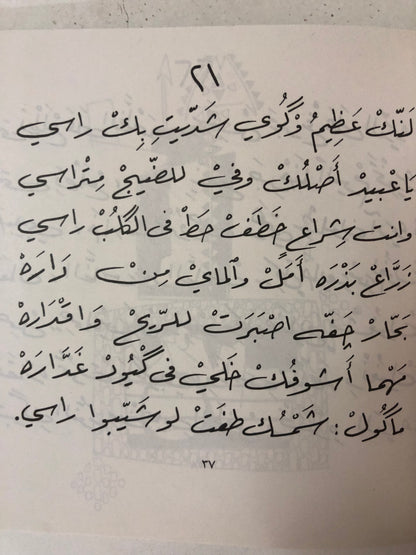 ٢١
لَنّكْ عَظِيمُ وْگوُي شَدّيتِ بِكْ راسي
يَاعْبيدْ أَصْلُكْ وفيْ للضّيجْ مِتْراسي
وانت شِراعٍ خَطَفْ حَطْ فى الگلُبْ راسي
زَرَّاعْ بَذْرَه أَمَلْ والمايْ مِنْ دَارَهْ
بَحّارْ چَفّه اصْبَرَتْ للرّيحْ وَاقْدَارهْ
مَهْما أَشوفُكْ خَلَيْ فى گيُودْ غَدَّارَهْ
ماگُولْ: شَمْسُك طفَتْ لو شَيّبوا راسي.
٣٧